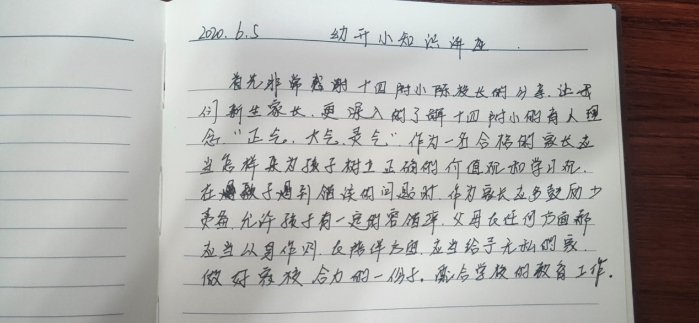 2020.6.5 幼升小知识讲座.
首先非常感谢十四附小陈校长的分享.让我
们新生家长.更深入的了解十四附小的育人理
念."正气、大气、灵气".作为一名合格的家长应
当怎样来为孩子树立正确的价值观和学习观.
在孩子遇到错误的问题时.作为家长应多鼓励少
责备.允许孩子有一定的容错率.父母在任何方面都
应当以身作则.在陪伴方面.应当给予无私的爱.
做好家校合力的一份子.配合学校的教育工作.